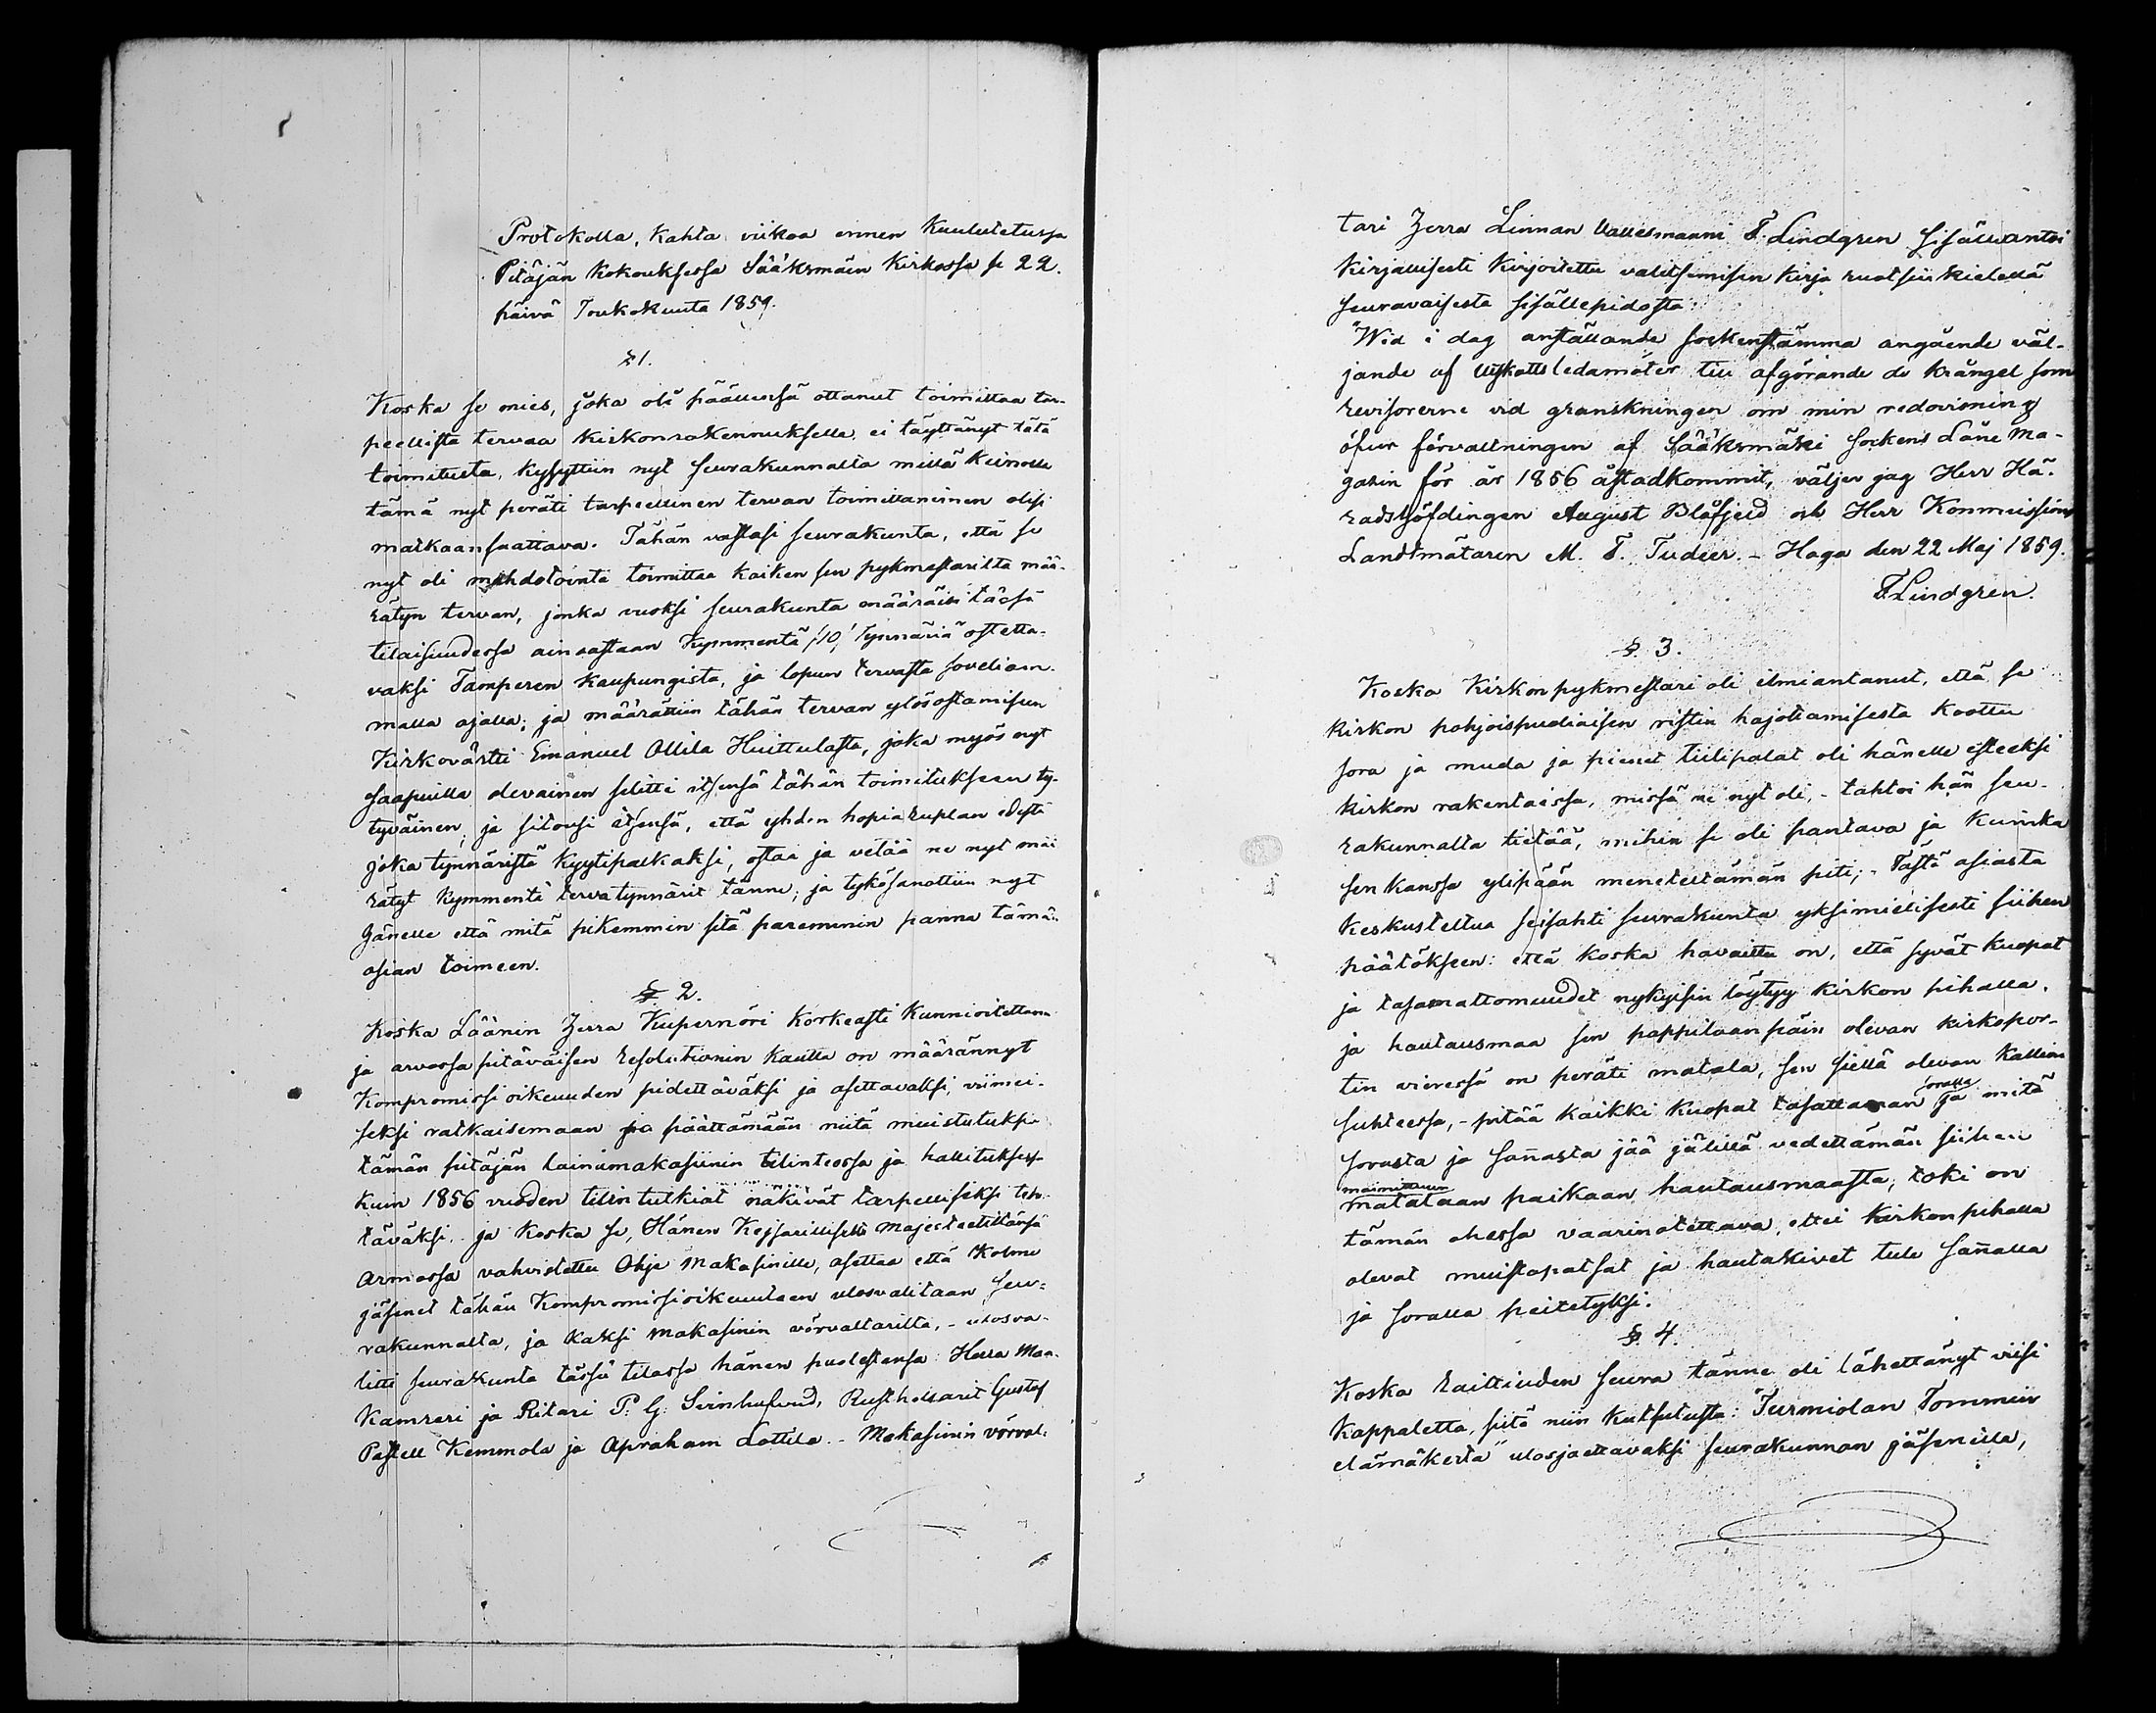 Protokolla, Kahta viikoa ennen Kuulutetussa
Pitäjän Kokouksessa Sääksmäen Kirkossa se 22.
päivä Toukokuuta 1859.
§ 1.
Koska se mies, joka oli päällensä ottanut toimittaa tar-
peellista tervaa kirkonrakennukselle, ei täyttänyt tätä
toimitusta, kysyttiin nyt seurakunnalta millä keinolla
tämä nyt peräti tarpeellinen tervan toimittaminen olisi
matkaansaattava. Tähän vastasi seurakunta, että se
nyt oli mahdotointa toimittaa kaiken sen pykmestarilta mää-
rätyn tervan, jonka vuoksi seurakunta määräisi tässä
tilaisuudessa ainoastaan Kymmentä /10/ Tynnäriä ostetta-
vaksi Tamperen Kaupungista, ja lopun tervasta soveliam-
malla ajalla; ja määrättiin tähän tervan ylösostamiseen
Kirkovärtti Emanuel Ollila Huittulasta, joka myös nyt
saapuilla olevainen selitti itsensä tähän toimitukseen ty-
tyväinen, ja sitousi itsensä, että yhden hopiaruplan edestä
joka tynnäristä kyytipalkaksi, ostaa ja vetää ne nyt mää
rätyt kymmentä tervatynnärit tänne; ja tykösanottiin nyt
hänelle että mitä pikemmin sitä paremmin panna tämän
asian toimeen.
§ 2.
Koska Läänin Herra Kupernöri Korkeasti Kunnioitettava
ja arvossa pitäväisen Resolutionin kautta on määrännyt
Kompromissi oikeuden pidettäväksi ja asettavaksi, viimei-
seksi ratkaisemaan ja päättämään niitä muistutuksia
tämän pitäjän lainamakasiinin tilinteossa ja hallituksess
kuin 1856 vuoden tilin tutkiat näkivät tarpelliseksi teh-
täväksi, ja koska se, Hänen Keisarilliselta Majesteetiltänsä
Armossa vahvistettu Ohje Makasinille, asettaa että Kolme
jäsenet tähän Kompromissioikeuteen ulosvalitaan seu-
rakunnalta, ja kaksi makasinin vörvaltarilta, - ulosva-
litti seurakunta tässä tilassa hänen puolestansa Herra Maa-
Kamreri ja Ritari P. G. Svinhufvud, Rusthollarit Gustaf
Pastell Kemmola ja Apraham Lottila. - Makasinin vörval-
tari Herra Linnan Vallesmanni F. Lindgren sisälleantoi
kirjallisesti kirjoitettu valitsemisen kirja ruotsin kielellä
seuravaisesta sisällepidosta:
"Wid i dag anställande sockenstämma angående väl-
jande af Utskottsledamöter till afgörande de krångel som
revisorerne vid granskningen om min redovisning
öfver förvaltningen af Sääksmäki Sockens Låne Ma-
gasin för år 1856 åstadkommit, väljer jag Herr Hä-
radshöfdingen August Blåfjeld och Herr Kommissions
Landtmätaren M. F. Tudeer. - Haga den 22 Maj 1859.
F. Lindgren.
§. 3.
Koska Kirkon pykmestari oli ilmiantanut, että se
kirkon pohjoispuoliaisen ristin hajottamisesta koottu
sora ja muda ja pienet tiilipalat oli hänelle esteeksi
kirkon rakentaissa, missä ne nyt oli, - tahtoi hän seu-
rakunnalta tietää, mihin se oli pantava ja kuinka
sen kanssa ylipään meneteltämän piti; - Tästä asiasta
keskusteltua seisahti seurakunta yksimielisesti siihen
päätökseen: että koska havaittu on, että syvät kuopat
ja tasamattomuudet nykyisin löytyy kirkon pihalla,
ja hautausmaa sen pappilaan päin olevan kirkopor-
tin vieressä on peräti matala, sen siellä olevan kallion
suhteessa, - pitää kaikki kuopat tasattaman soralla ja mitä
sorasta ja sannasta jää jälillä vedettämän siihen
mainittuun
matalaan paikaan hautausmaasta, toki on
tämän ohessa vaarinotettava, ettei kirkonpihalla
olevat muistopatsat ja hautakivet tule sannalla
ja soralla peitetyksi.
§. 4.
Koska Raittiuden Seura tänne oli lähettänyt viisi
kappaletta, siitä niin kutsutusta: "Turmiolan Tommin
elämäkerta" ulosjaettavaksi seurakunnan jäsenille,